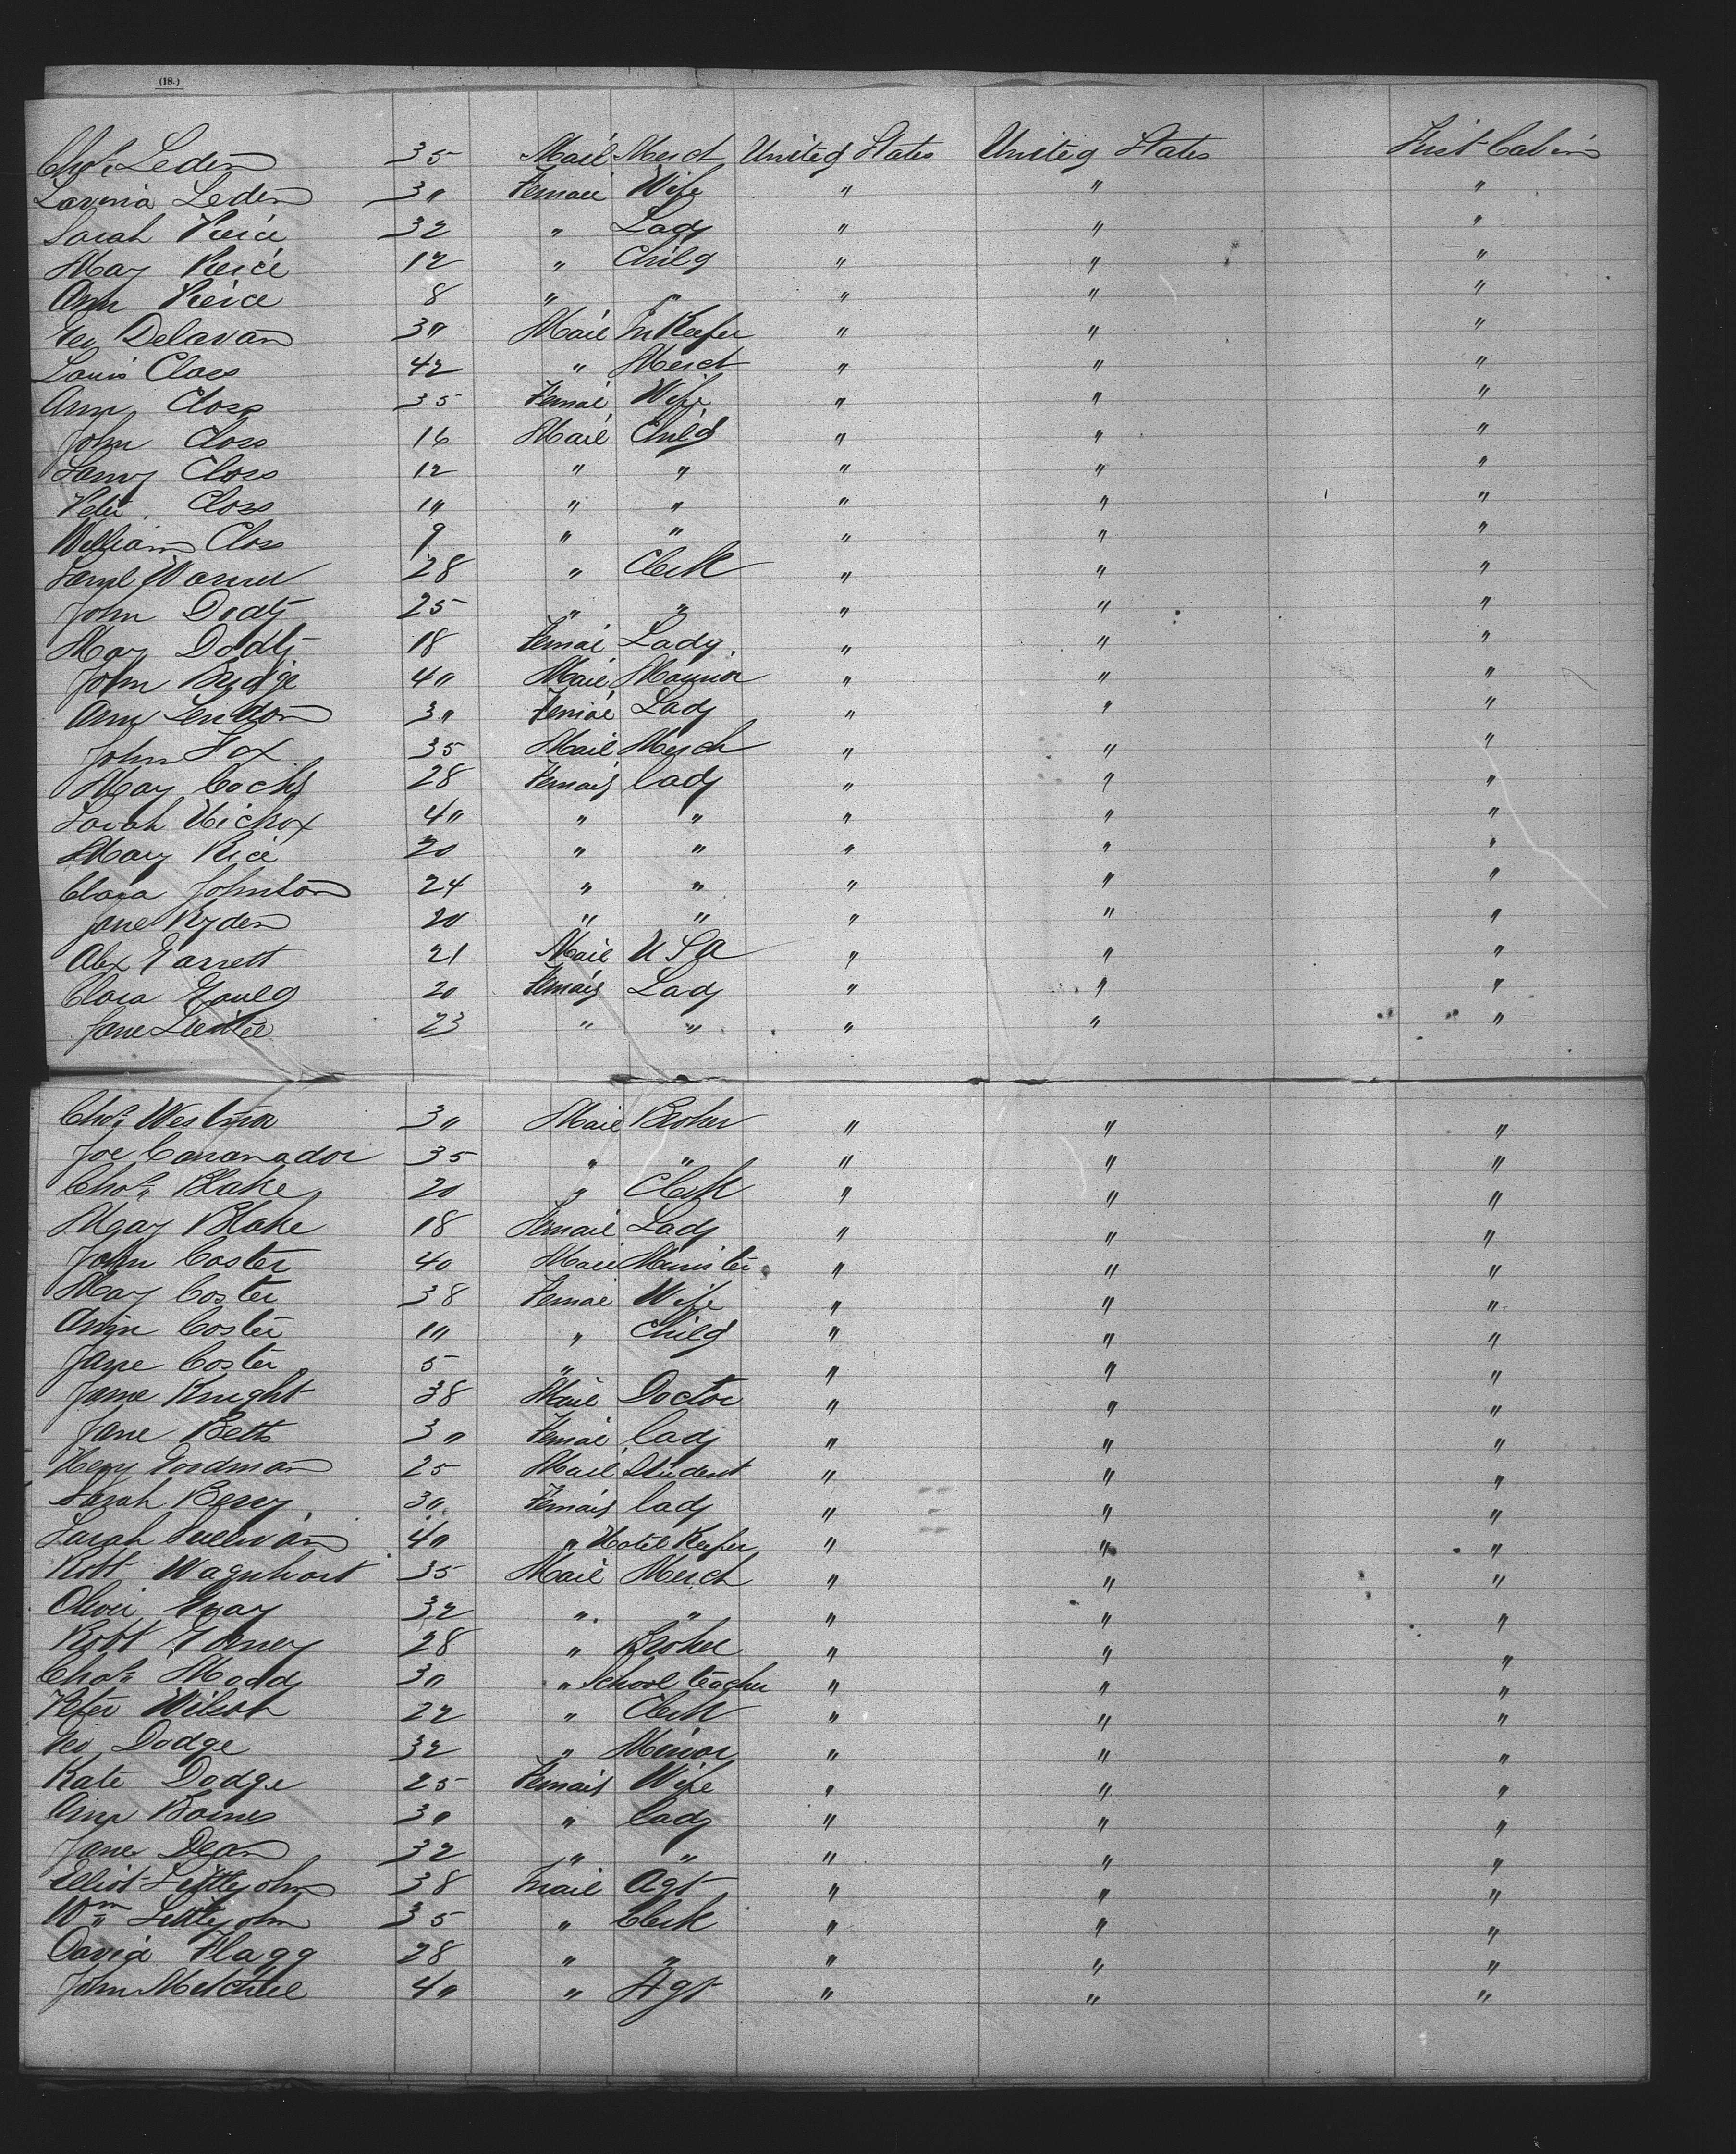 (18.)
Chas Leden 35 Mail Merct United States United States First Cabin
Lavinia Leden 30 Femail Wife " " "
Sarah Peirce 32 " Lady " " "
May Peirce 12 " Child " " "
Ann Peirce 8 " " " " "
Geo Delavan 30 Mail In Keeper " " "
Louis Closs 42 " Merct " " "
Ann Closs 35 Femai Wife " " "
John Closs 16 Mail Child " " "
Closs 12 " " " " "
Peter Closs 10 " " " " "
William Closs 9 " " " " "
Saml Warner 28 " Clerk " " "
John Doty 25 " " " " "
May Doty 18 Femai Lady " " "
John Budge 40 Mail " " "
Ann Lendon 30 Femai Lady " " "
John Fox 35 Mail Merch " " "
May 28 Femail lady " " "
Sarah Hickox 40 " " " " "
Mary Rice 20 " " " " "
Clara Johnston 24 " " " " "
Jane Ryden 20 " " " " "
Alex Garrett 21 Mail U S A " " "
Clara Gould 20 Femail Lady " " "
Jane 23 " " " " "
Chas 30 Mail Broker " " "
Joe 35 " " " " "
Chas Blake 20 " Clerk " " "
May Blake 18 Femail Lady " " "
John Coster 40 Mail Minister " " "
May Coster 38 Femai Wife " " "
Ann Coster 10 " Child " " "
Jane Coster 5 " " " "
Jame Knight 38 Mail Doctor " " "
Jane Betts 30 Femai lady " " "
Heny Goodman 25 Mail Student " " "
Sarah Berry 30 Femail lady " " "
Sarah Sullivan 40 " Hotel Keeper " " "
Robt Wagnhort 35 Mail Merch " " "
Oliver Gray 32 " " " " "
Robt 28 " Broker " " "
Chas Modd 30 " School teacher " " "
Peter Wilson 22 " Clerk " " "
Geo Dodge 32 " Minor " " "
Kate Dodge 25 Femail Wife " " "
Ann Baines 30 " lady " " "
Jane Dean 32 " " " " "
Elliot Littlejohn 38 mail Agt " " "
Wm Littlejohn 35 " Clerk " " "
David Flagg 28 " " " " "
John Mitchel 40 " Agt " " "